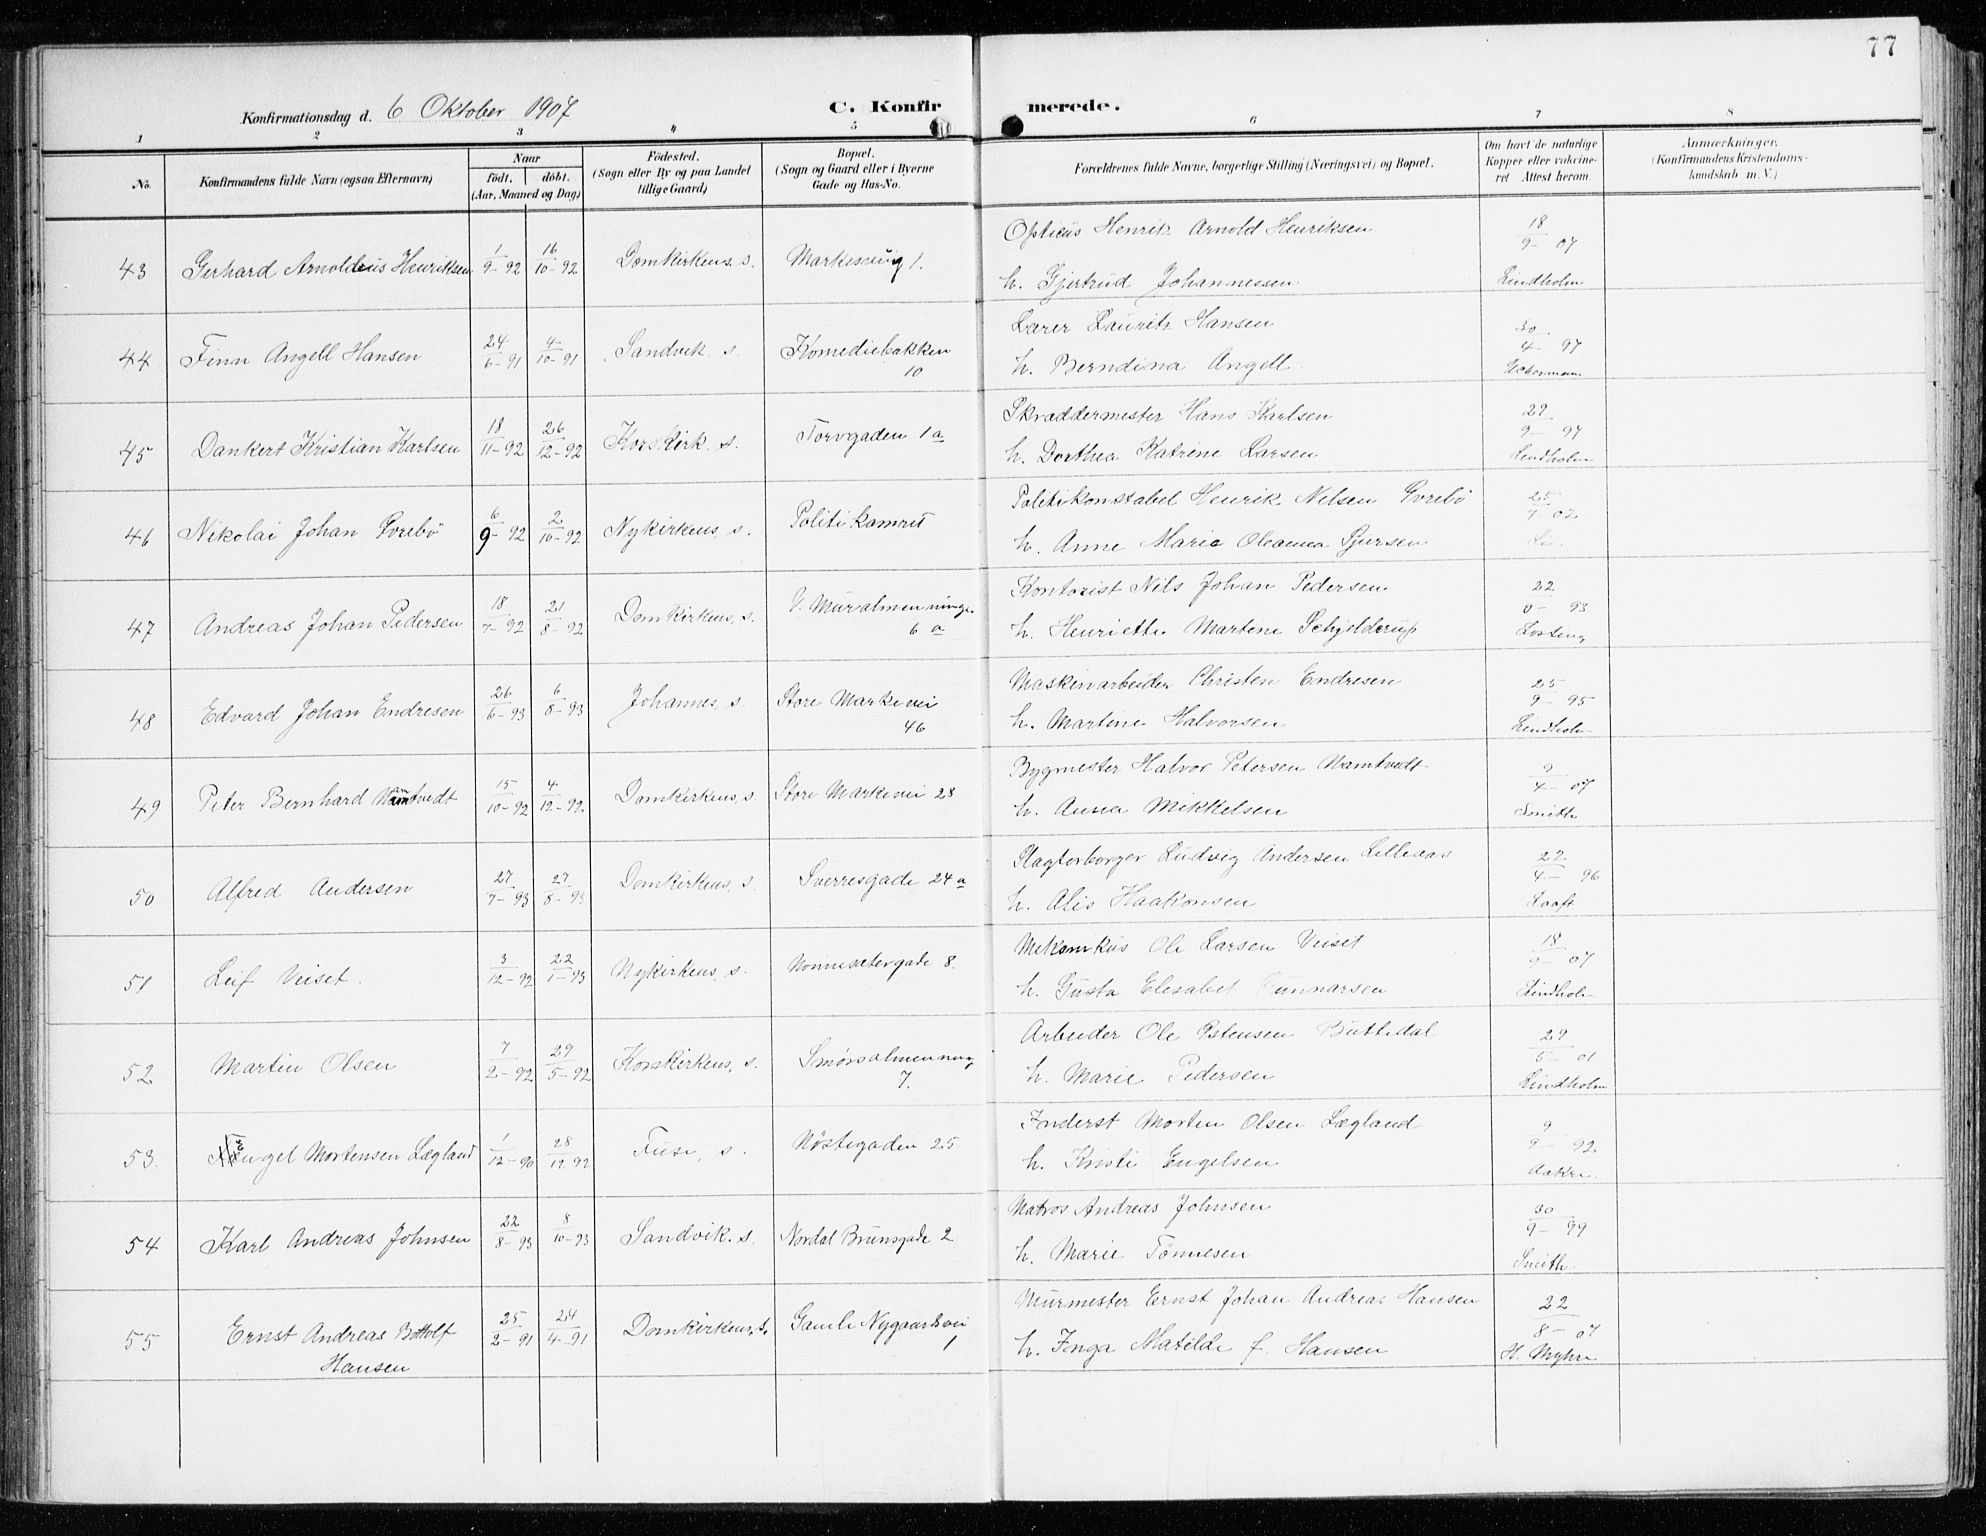 77
Konfirmationsdag d. 6 Oktober 1907 C. Konfirmerede.
1 2 3 4 5 6 7 8
No. Konfirmandens fulde Navn (ogsaa Efternavn) Naar födt. döbt. (Aar, Maaned og Dag) Födested. (Sogn eller By og paa Landet tillige Gaard) Bopæl. (Sogn og Gaard eller i Byerne Gade og Hus-No. Forældrenes fulde Navne, borgerlige Stilling (Næringsvei) og Bopæl. Om havt de naturlige Kopper eller vaccineret Attest herom. Anmærkninger. (Konfirmandens Kristendomskundskab m. V.)
43 Gerhard Arnoldeus Henriksen 1/9-92 16/10-92 Domkirkens, s. Markesvug 1. Opticus Henrik Arnold Henriksen 18/9-07
h. Gjertrud Johannessen Lindholm
44 Finn Angell Hansen 24/6-91 4/10-91 Sandvik. s. Komediebakken 10 Lærer Lauritz Hansen 30/4-97
h. Berndina Angell.
45 Dankert Kristian Karlsen 18/11-92 26/12-92 Korskirk. s. Torvgaden 1 a Skræddermester Hans Karlsen 29/9-97
h. Dorthea Katrine Larsen Lindholm
46 Nikolai Johan Svrebö 6/9-92 2/10-92 Nykirkens, s. Politikamret Politikonstabel Henrik Nelsen Svrebö 25/-02
h. Anne Marie Oleanna Sjursen
47 Andreas Johan Pedersen 18/7-92 21/8-92 Domkirkens, s. V. Muralmenninge 6 a Kontorist Nils Johan Pedersen 22/-93
h. Henriette Martene Schjelderup Losting
48 Edvard Johan Endresen 26/6-93 6/8-93 Johannes, s. Store Markevei 46 Maskinarbeider Christen Endresen 25/9-95
h. Martine Halvorsen Lindholm
49 Peter Bernhard Namtvedt 15/10-92 4/12-92 Domkirkens, s. Store Markevei 28 Bygmester Halvor Petersen Namtvedt 9/4-07
h. Anna Mikkelsen Smith
50 Alfred Andersen 27/7-93 27/8-93 Domkirkens, s. Sverresgade 24 a Slagterborger Ludvig Andersen Lilleaas 22/4-96
h. Alis Haakonsen Looft
51 Leif Veiset. 3/12-92 22/1-93 Nykirkens, s. Nonnesetergade 8. Mekanikus Ole Larsen Veiset 18/9-07
h. Gusta Elesabet Gunnarsen Lindholm
52 Martin Olsen 7/2-92 29/5-92 Korskirkens, s. Smörsalmenning 7. Arbeider Ole Østensen Buttedal 29/5-01
h. Marie Pedersen Lindholm
53. Engel Mortensen Lægland 1/12-90 28/12 92 Fuse, s. Nöstegaden 25 Inderst Morten Olsen Lægland 9/9-92
h. Kristi Engelsen Aakre
54 Karl Andreas Johnsen 22/8-93 8/10-93 Sandvik. s. Nordal Brunsgade 2 Matros Andreas Johnsen 30/9-99
h. Marie Tönnesen Smith.
55 Ernst Andreas Bottolf Hansen 25/2-91 24/4-91 Domkirkens, s. Gamle Nygaardsvei 1 Murmester Ernst Johan Andreas Hansen 22/8-07
h. Inga Matilde f. Hansen H. Myhre